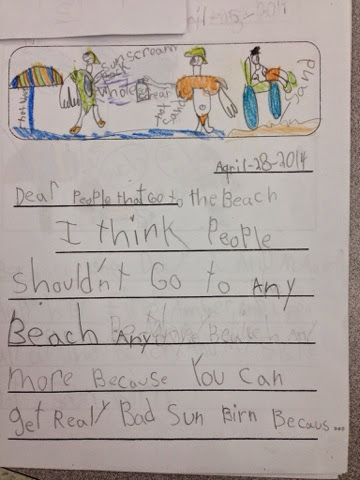 April-25-2014
Sun scream
Back
whole
hot
Sand
Sand
April-28-2014
Dear People that Go to the Beach
I think People
shouldn't Go to Any
Beach Any
more Because You can
get Really Bad Sun Birn Becaus...